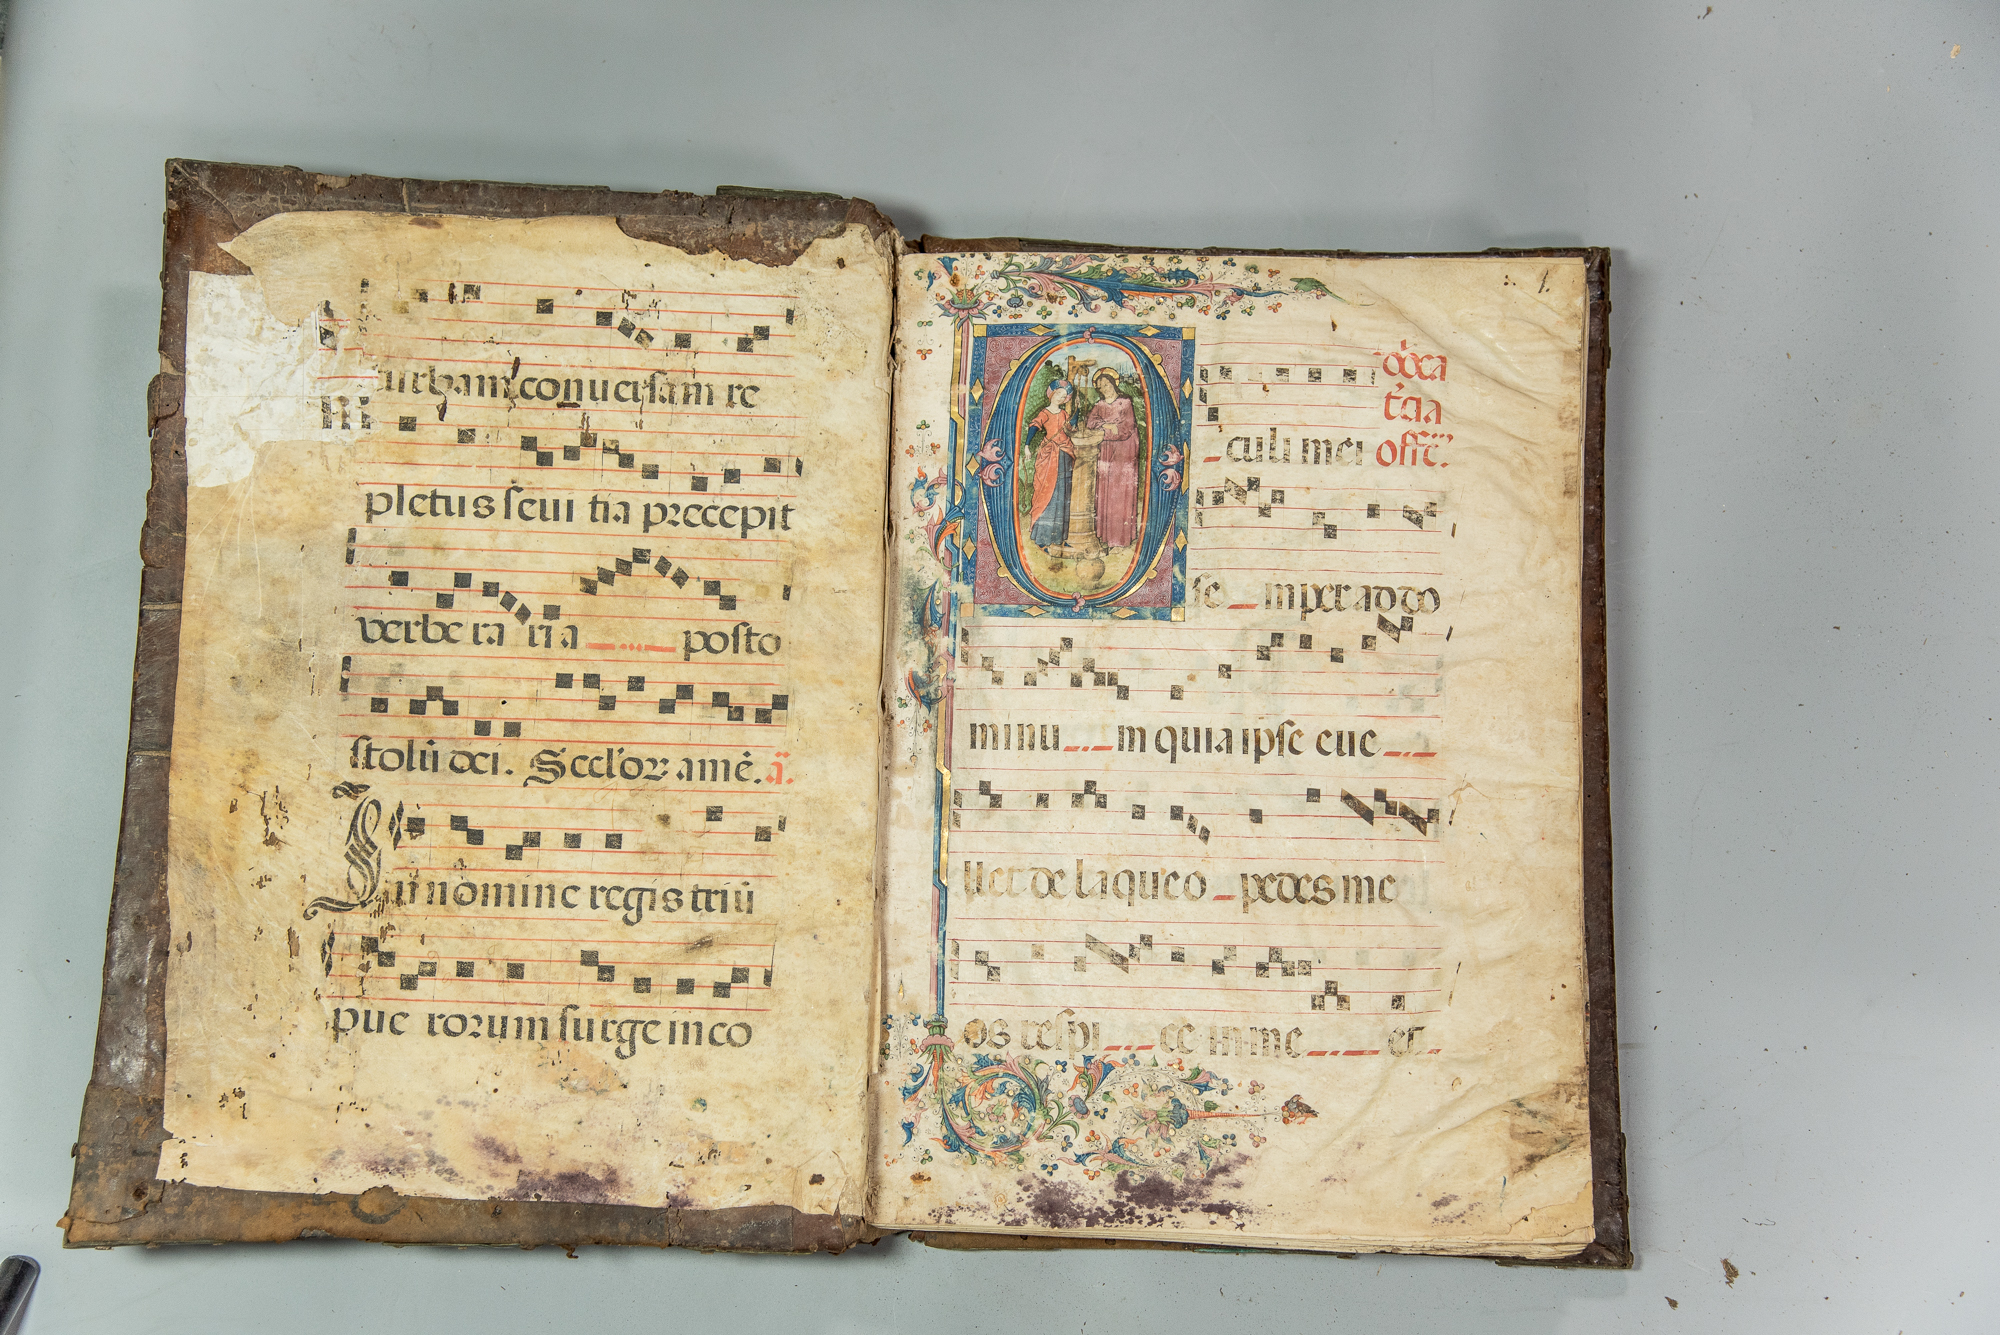 turbam conuersam re
pletus seui tia precepit
verbe ra ri a posto
stolū dei. Secl'oꝝ amē. ā.
In nomine regis triū
pue rorum surge in co
1.
O
culi mei offē.
se mper ad do
minu m quia ipse eue
llet de laqueo pedes me
os respi ce in me et